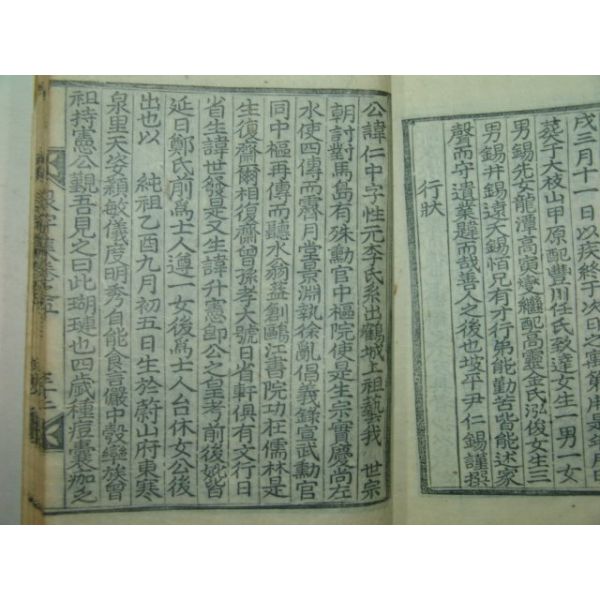 戌三月十一日以疾終于次日之寅
葬于大枝山甲原配豐川任氏致達女生一男一女
男錫先女龍潭高寅燮繼配高靈金氏泓俊女生三
男錫井錫遠天錫怡兄有才行弟能勤苦皆能述家
聲而守遺業韙而哉善人之後也坡平尹仁錫謹撰
行狀
公諱仁中字性元李氏系出鶴城上祖藝我 世宗
朝討對馬島有殊勳官中樞院使是生宗實慶尚左
水使四傳而霽月堂景淵執徐亂倡義錄宣武勳官
同中樞再傳而聽水翁蓋創鷗江書院功在儒林是
生復齋爾相復齋曾孫孝大號日省軒俱有文行日
省生諱世發是又生諱升憲卽公之皇考前後妣皆
延日鄭氏前爲士人遵一女後爲士人台休女公後
出也以 純祖乙酉九月初五日生於蔚山府東寒
泉里天姿穎敏儀度明秀自能食言儼中彀巒族曾
祖持憲公觀吾見之曰此瑚璉也四歲種痘囊痂之